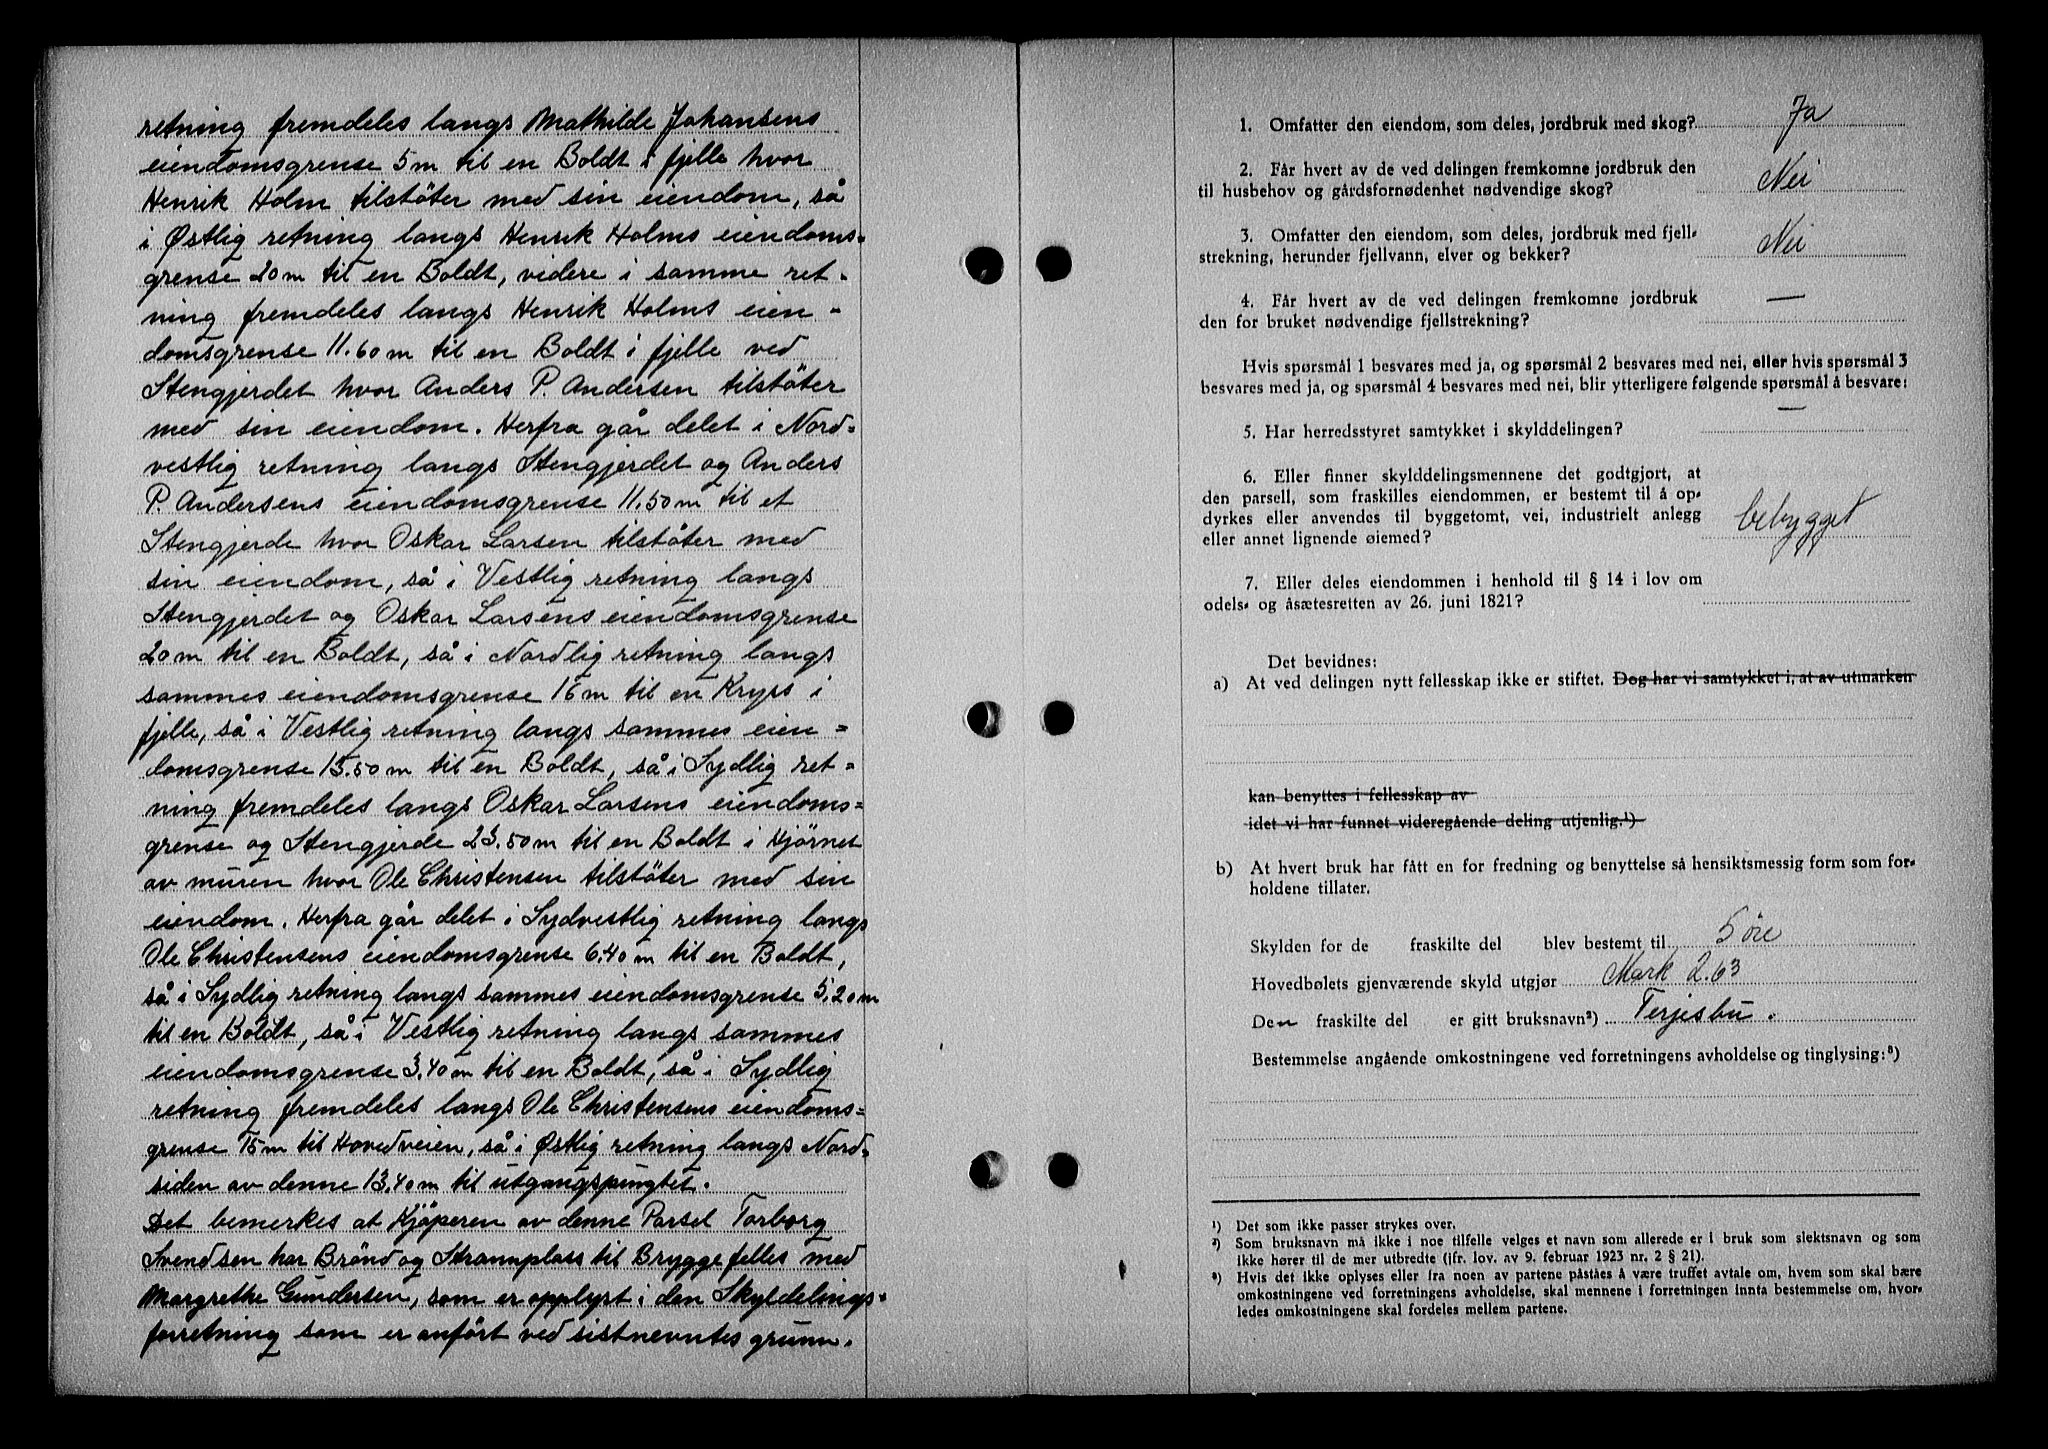 retning fremdeles langs Mathilde Johansens
eiendomsgrense 5 m til en Boldt i fjelle hvor
Henrik Holm tilstöter med sin eiendom, så
i Østlig retning langs Henrik Holms eiendoms=
grense 20 m til en Boldt, videre i samme ret-
ning fremdeles langs Henrik Holms eien-
domsgrense 11.60 m til en Boldt i fjelle ved
Stengjerdet hvor Anders P. Andersen tilstöter
med sin eiendom. Herfra går delet i Nord=
vestlig retning langs Stengjerdet og Anders
P. Andersens eiendomsgrense 11.50 m til et
Stengjerde hvor Oskar Larsen tilstöter med
sin eiendom, så i Vestlig retning langs
Stengjerdet og Oskar Larsens eiendomsgrense
20 m til en Boldt, så i Nordlig retning langs
sammes eiendomsgrense 16 m til en Kryss i
fjelle, så i Vestlig retning langs sammes eien=
domsgrense 13.50 m til en Boldt, så i Sydlig ret=
ning fremdeles langs Oskar Larsens eiendoms=
grense og Stengjerde 23.50 m til en Boldt i Hjörnet
av muren hvor Ole Christensen tilstöter med sin
eiendom. Herfra går delet i Sydvestlig retning langs
Ole Christensens eiendomsgrense 6.40 m til en Boldt,
så i Sydlig retning langs sammes eiendomsgrense 5,20 m
til en Boldt, så i Vestlig retning langs sammes
eiendomsgrense 3,40 m til en Boldt, så i Sydlig
retning fremdeles langs Ole Christensens eiendoms=
grense 15 m til Hovedveien, så i Østlig retning langs Nord=
siden av denne 13,40 m til utgangspungtet.
Det bemerkes at Kjöperen av denne Parsel Torborg
Svendsen har Brönd og Strannplass til Brygge felles med
Margrethe Gundersen, som er opplyst i den Skyldelings=
forretning som er anfört ved sistnevntes grunn.
1. Omfatter den eiendom, som deles, jordbruk med skog? Ja
2. Får hvert av de ved delingen fremkomne jordbruk den
til husbehov og gårdsfornødenhet nødvendige skog? Nei
3. Omfatter den eiendom, som deles, jordbruk med fjell=
strekning, herunder fjellvann, elver og bekker? Nei
4. Får hvert av de ved delingen fremkomne jordbruk —
den for bruket nødvendige fjellstrekning?
Hvis spørsmål 1 besvares med ja, og spørsmål 2 besvares med nei, eller hvis spørsmål 3
besvares med ja, og spørsmål 4 besvares med nei, blir ytterligere følgende spørsmål å besvare:
5. Har herredsstyret samtykket i skylddelingen? —
6. Eller finner skylddelingsmennene det godtgjort, at
den parsell, som fraskilles eiendommen, er bestemt til å op=
dyrkes eller anvendes til byggetomt, vei, industrielt anlegg
eller annet lignende øiemed? bebygget
7. Eller deles eiendommen i henhold til § 14 i lov om
odels= og åsætesretten av 26. juni 1821?
Det bevidnes:
a) At ved delingen nytt fellesskap ikke er stiftet. Dog har vi samtykket i, at av utmarken
kan benyttes i fellesskap av
idet vi har funnet videregående deling utjenlig.¹)
b) At hvert bruk har fått en for fredning og benyttelse så hensiktsmessig form som for=
holdene tillater.
Skylden for de fraskilte del blev bestemt til 5 öre
Hovedbølets gjenværende skyld utgjør Mark 2.63
Den fraskilte del er gitt bruksnavn²) Terjesbu.
Bestemmelse angående omkostningene ved forretningens avholdelse og tinglysing:³)
¹) Det som ikke passer strykes over.
²) Som bruksnavn må ikke i noe tilfelle velges et navn som allerede er i bruk som slektsnavn og som
ikke hører til de mer utbredte (jfr. lov. av 9. februar 1923 nr. 2 § 21).
³) Hvis det ikke oplyses eller fra noen av partene påståes å være truffet avtale om, hvem som skal bære
omkostningene ved forretningens avholdelse, skal mennene i forretningen innta bestemmelse om, hvor=
ledes omkostningene skal fordeles mellem partene.